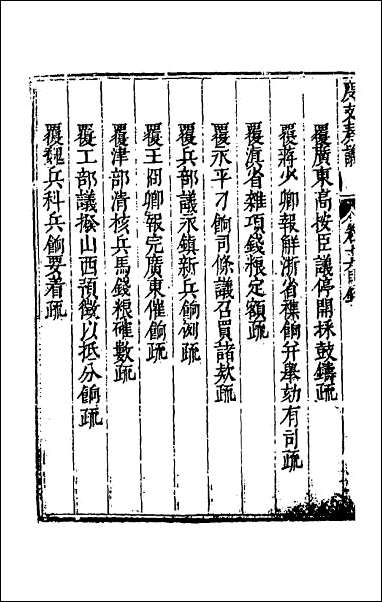 度支奏議
覆廣東高按臣議停開採鼓鑄疏
覆蔣少卿報解浙省襍餉并舉劾有司疏
覆滇省雜項錢粮定額疏
覆永平刁餉司條議召買諸欵疏
覆兵部議永鎮新兵餉例疏
覆王冏卿報完廣東催餉疏
覆津部清核兵馬錢粮確數疏
覆工部議撥山西預徵以抵分餉疏
覆魏兵科兵餉要着疏